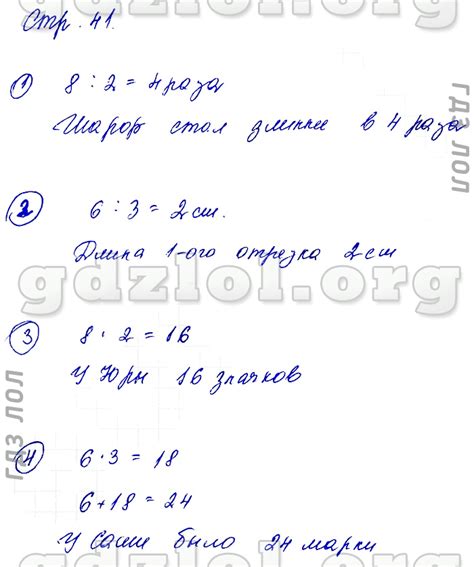 Стр. 41.
gdzlol.org
1 8 : 2 = 4 раза
Шарф стал длиннее в 4 раза
гдз лол
2 6 : 3 = 2 см.
Длина 1-ого отрезка 2 см
gdzlol.org
3 8 · 2 = 16
У Юры 16 значков
гдз лол
4 6 · 3 = 18
6 + 18 = 24
У Саши было 24 марки
gdzlol.org